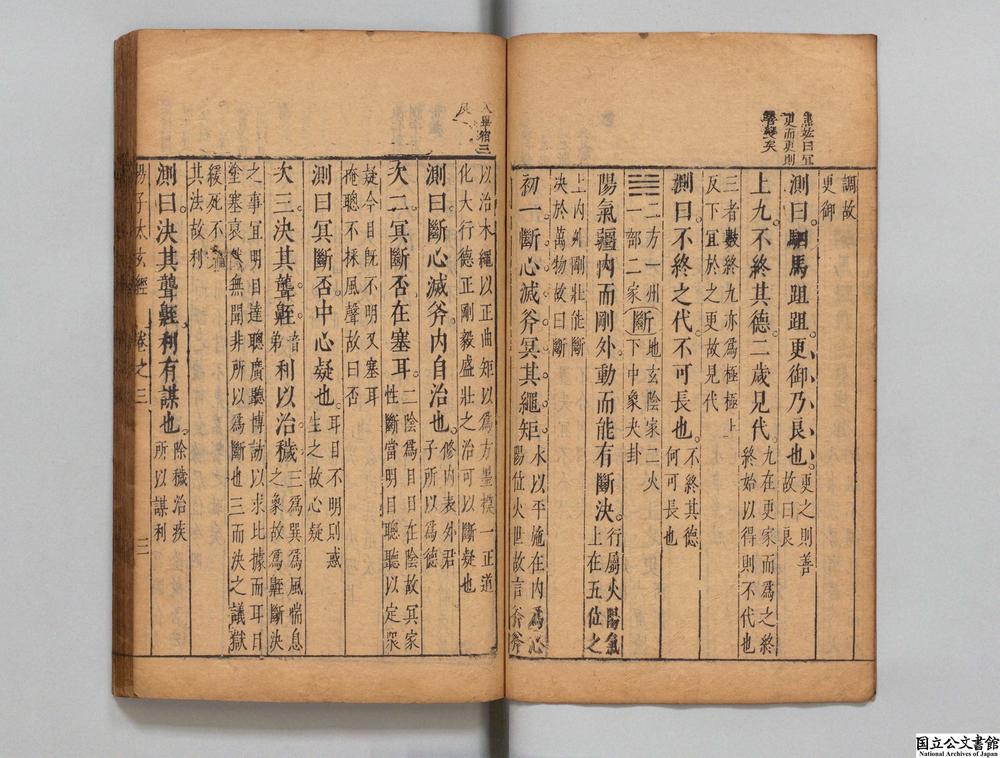 調故
更御
測曰駟馬跙跙更御乃良也 更之則善 故曰良
上九不終其德三歲見代 九在更家而爲之終 終始以得則不代也
三者數終九亦爲極極上
反下宜於之更故見代
測曰不終之代不可長也 不終其德 何可長也
二方一州 地玄陰家二火
一部二家 斷 下中象夬卦
陽氣彊內而剛外動而能有斷決 行屬火陽氣 上在五位之
上內外剛壯能斷
決於萬物故曰斷
初一斷心滅斧冥其繩矩 水以平施在內爲心 陽位火世故言斧斧
以治木繩以正曲矩以爲方墨模一正道
化大行德正剛毅盛壯之治可以斷疑也
測曰斷心滅斧內自治也 修內表外君 子所以爲德
次二冥斷否在塞耳 二陰爲目目在陰故冥家 性斷當明目聰聽以定眾
疑今目旣不明又塞耳
掩聰不採風聲故曰否
測曰冥斷否中心疑也 耳目不明則惑 生之故心疑
次三決其聾𪖐 音弟 利以治穢 三爲巽爲風喘息 之象故爲𪖐斷決
之事宜明目達聰廣聽博訪以求比據而耳目
塗塞哀然無聞非所以爲斷也三而決之議獄
緩死不
其法故利
測曰決其聾𪖐利有謀也 除穢治疾 所以謀利
楊子太玄經 卷之三 三
宜更而更則
入畢宿三
国立公文書館
National Archives of Japan